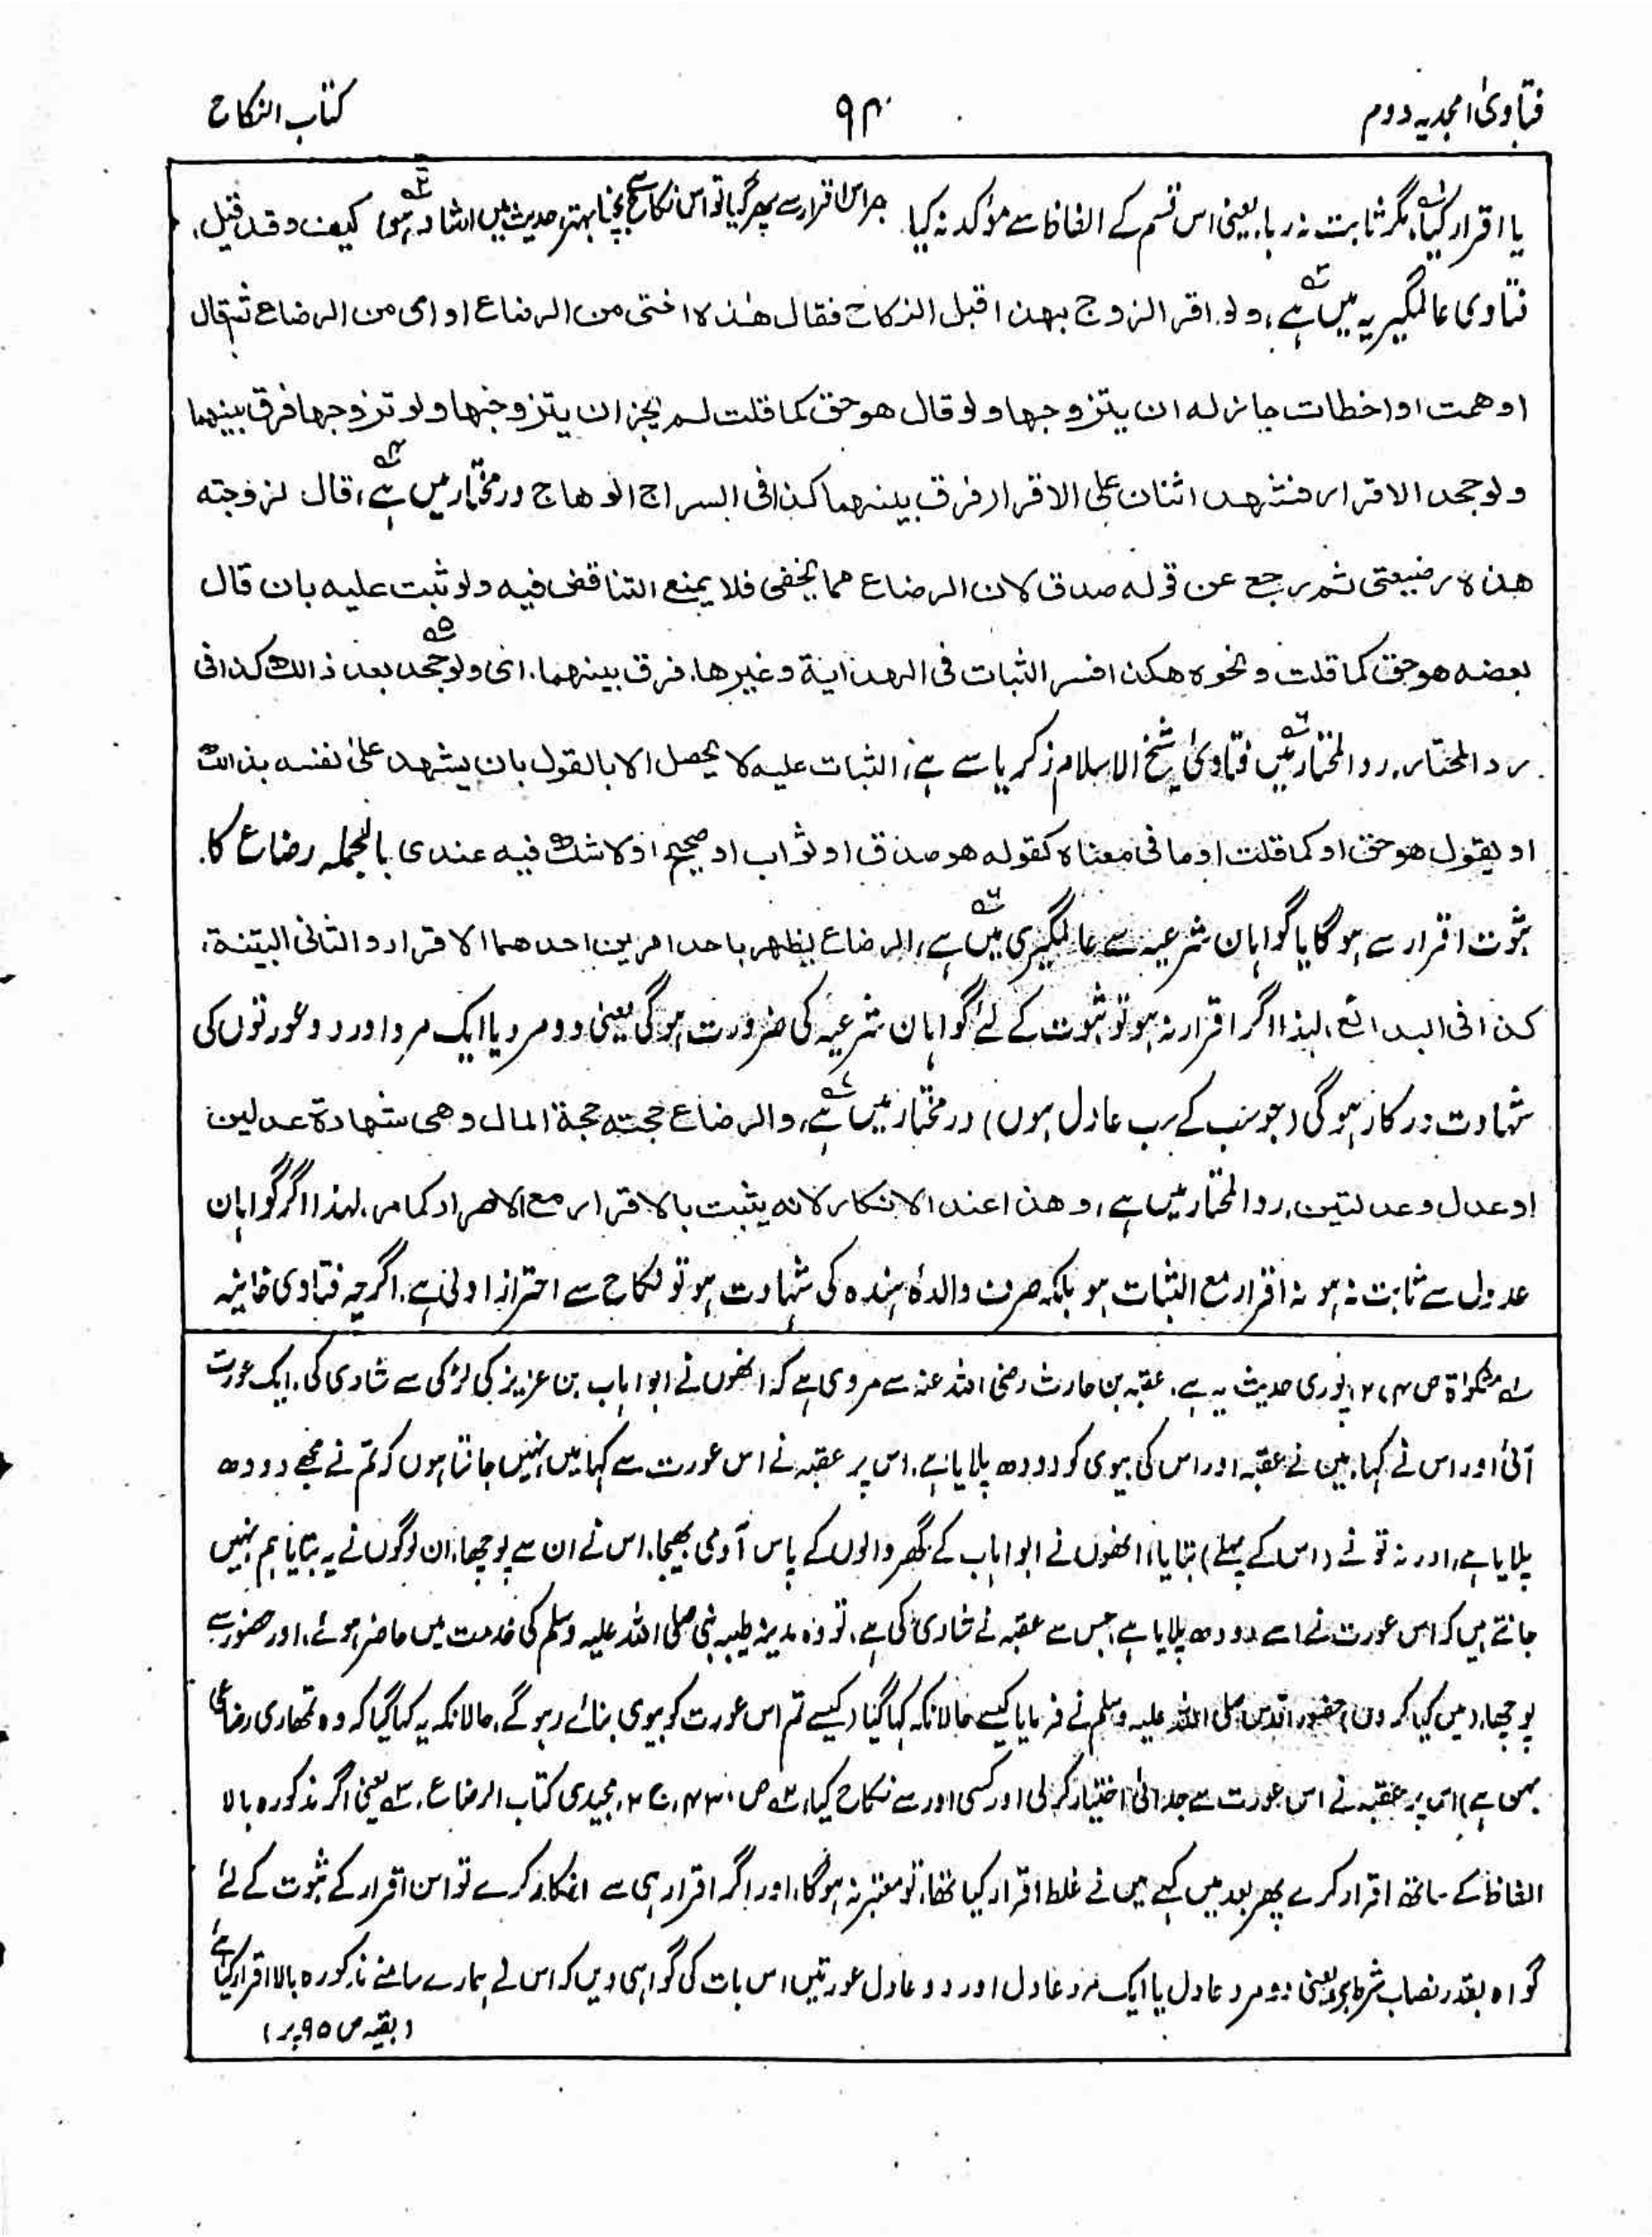 فتاویٰ امجدیہ دوم
۹۴
کتاب النکاح
یا اقرار کیا، مگر ثابت نہ رہا، یعنی اس قسم کے الفاظ سے مؤکد نہ کیا۔ پھر اس اقرار سے پھر گیا تو اس نکاح سے بچنا بہتر، حدیث میں ارشاد ہوا کیف وقد قیل،
فتاوی عالمگیریہ میں ہے، ولو اقر الزوج بھذا قبل النکاح فقال ھذہ اختی من الرضاع او امی من الرضاع ثم قال
اوھمت او اخطات جاز لہ ان یتزوجھا ولو قال ھو حق کما قلت لم یجز ان یتزوجھا ولو تزوجھا فرق بینھما
ولو جحد الاقرار فشھد اثنان علی الاقرار فرق بینھما کذا فی السراج الوھاج درمختار میں ہے، قال لزوجتہ
ھذہ رضیعتی ثم رجع عن قولہ صدق لان الرضاع مما یخفی فلا یمنع التناقض فیہ ولو ثبت علیہ بان قال
بعضہ ھو حق کما قلت ونحوہ ھکذا فسر الثبات فی الھدایۃ وغیرھا۔ فرق بینھما۔ ای ولو جحد بعد ذالک کذا فی
رد المحتار۔ رد المحتار میں فتاویٰ شیخ الاسلام زکریا سے ہے، الثبات علیہ لا یحصل الا بالقول بان یشھد علیٰ نفسہ بذالک
او یقول ھو حق او کما قلت او ما فی معناہ کقولہ ھو صدق او ثواب او صحیح او لا شک فیہ عندی۔ بالجملہ رضاع کا
ثبوت اقرار سے ہوگا یا گواہان شرعیہ سے عالمگیری میں ہے، الرضاع یظھر باحد امرین احدھما الاقرار والثانی البینۃ،
کذا فی البدائع، لہذا اگر اقرار نہ ہو تو ثبوت کے لئے گواہان شرعیہ کی ضرورت ہوگی یعنی دو مرد یا ایک مرد اور دو عورتوں کی
شہادت درکار ہوگی (جو سب کے سب عادل ہوں) درمختار میں ہے، والرضاع حجتہ حجۃ المال وھی شھادۃ عدلین
او عدل وعدلتین، ردالمحتار میں ہے، وھذا عند الانکار لانہ یثبت بالاقرار مع الاصرار کما مر، لہذا اگر گواہان
عدول سے ثابت نہ ہو نہ اقرار مع الثبات ہو بلکہ صرف والدۂ ہندہ کی شہادت ہو تو نکاح سے احتراز اولیٰ ہے۔ اگرچہ فتاوی خانیہ
لے مشکوٰۃ ص ۲۷۴، پوری حدیث یہ ہے۔ عقبہ بن حارث رضی اللہ عنہ سے مروی ہے کہ انھوں نے ابو اہاب بن عزیز کی لڑکی سے شادی کی۔ ایک عورت
آئی اور اس نے کہا، میں نے عقبہ اور اس کی بیوی کو دودھ پلایا ہے، اس پر عقبہ نے اس عورت سے کہا میں نہیں جانتا ہوں کہ تم نے مجھے دودھ
پلایا ہے، اور نہ تو نے (اس کے پہلے) بتایا، انھوں نے ابو اہاب کے گھر والوں کے پاس آدمی بھیجا، اس نے ان سے پوچھا، ان لوگوں نے یہ بتایا ہم نہیں
جانتے ہیں کہ اس عورت نے اسے دودھ پلایا ہے، جس سے عقبہ نے شادی کی ہے، تو وہ مدینہ طیبہ نبی صلی اللہ علیہ وسلم کی خدمت میں حاضر ہوئے، اور حضور سے
پوچھا، (میں کیا کروں) حضور اقدس صلی اللہ علیہ وسلم نے فرمایا کیسے حالانکہ کہا گیا (کیسے تم اس عورت کو بیوی بنائے رہو گے، حالانکہ یہ کہا گیا کہ وہ تمھاری رضاعی
بہن ہے) اس پر عقبہ نے اس عورت سے جدائی اختیار کر لی اور کسی اور سے نکاح کیا، ص ۴۳۰، ج ۲، مجیدی کتاب الرضاع، یعنی اگر مذکورہ بالا
الفاظ کے ساتھ اقرار کرے پھر بعد میں کہے میں نے غلط اقرار کیا تھا، تو معتبر نہ ہوگا، اور اگر اقرار ہی سے انکار کرے تو اس اقرار کے ثبوت کے لئے
گواہ بقدر نصاب شرعی یعنی دو مرد عادل یا ایک مرد عادل اور دو عادل عورتیں اس بات کی گواہی دیں کہ اس نے ہمارے سامنے مذکورہ بالا اقرار کیا ہے
(بقیہ ص ۹۵ پر)